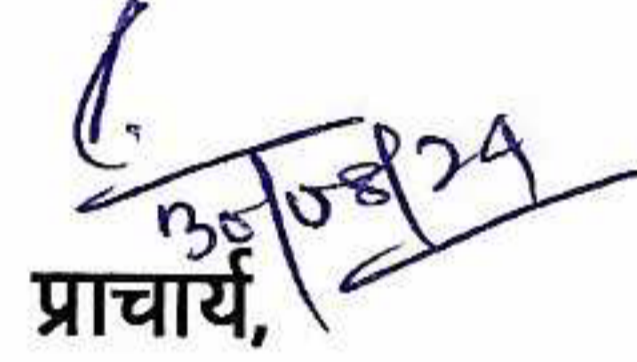 30/08/24
प्राचार्य,